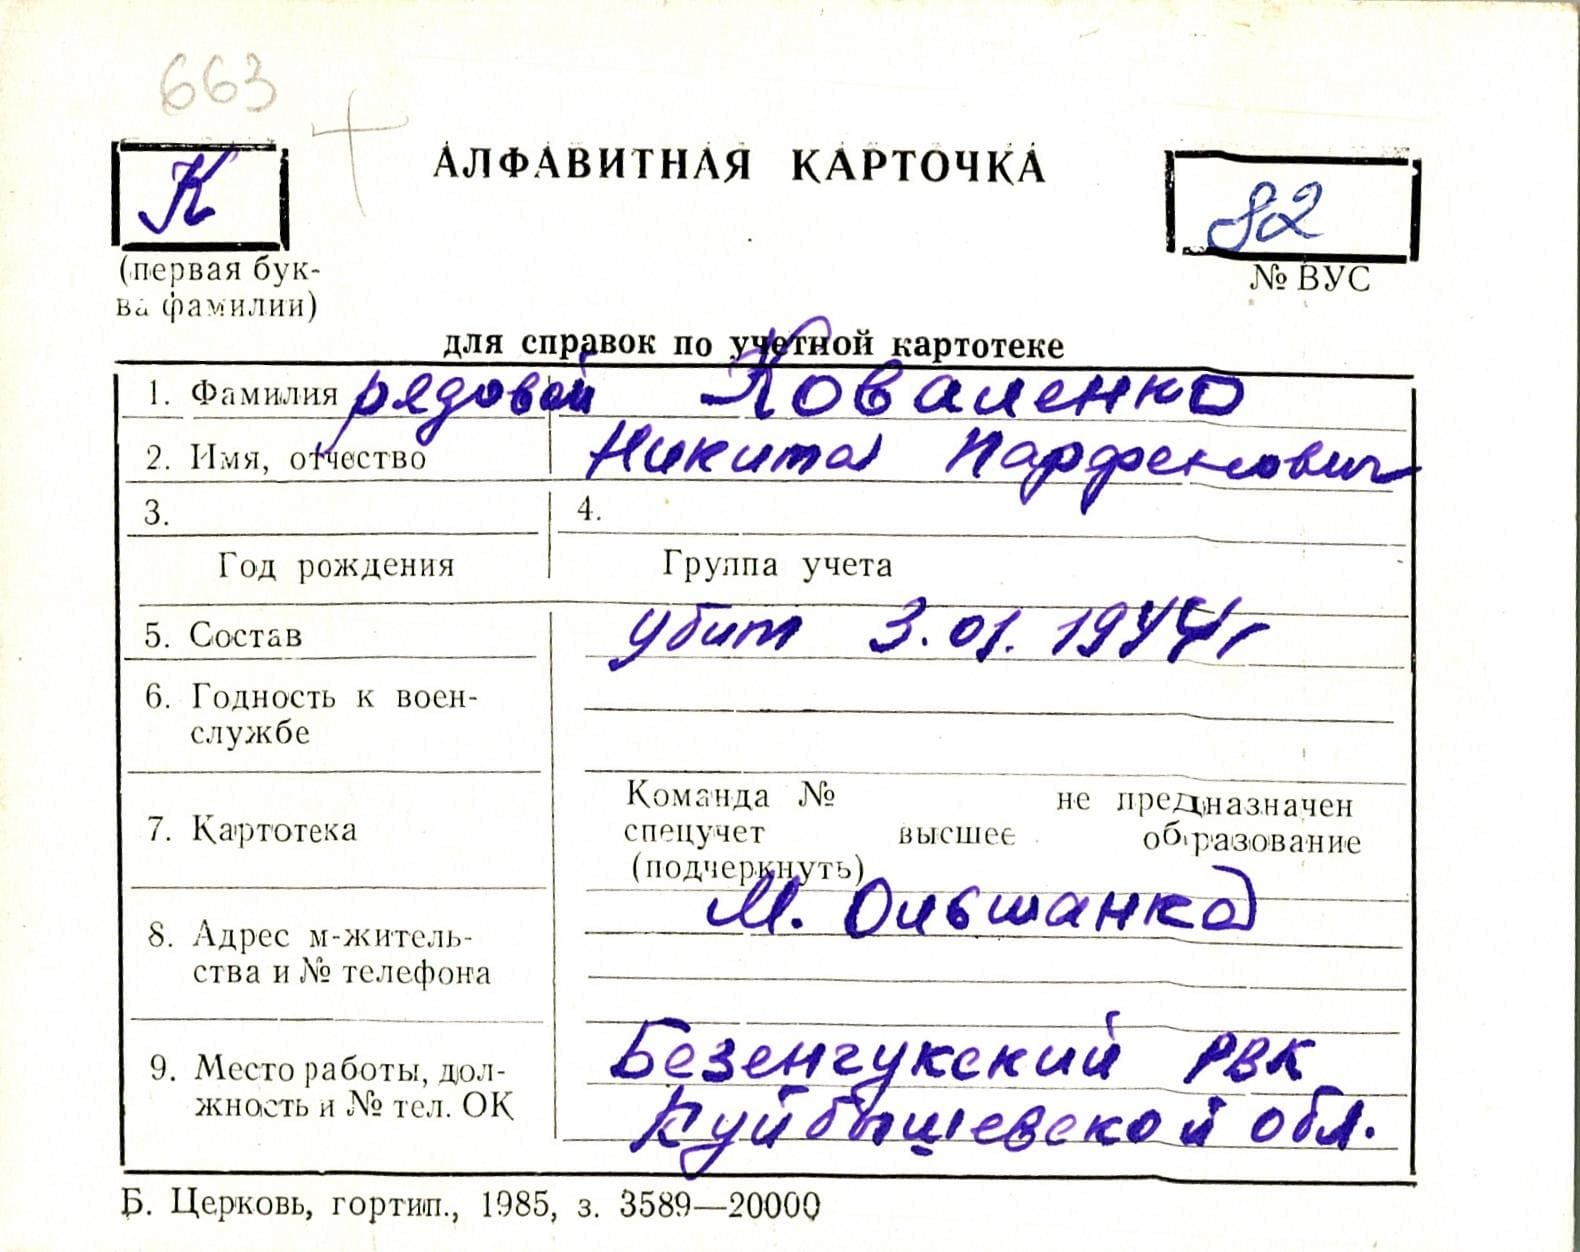 663
К
АЛФАВИТНАЯ КАРТОЧКА
82
(первая бук-
ва фамилии)
№ ВУС
для справок по учетной картотеке
1. Фамилия рядовой Коваленко
2. Имя, отчество Никита Парфенович
3.
4.
Год рождения
Группа учета
5. Состав
убит 3.01.1944г
6. Годность к воен-
службе
7. Картотека
Команда № не предназначен
спецучет высшее образование
(подчеркнуть)
8. Адрес м-житель-
ства и № телефона
М. Ольшанка
9. Место работы, дол-
жность и № тел. ОК
Безенчукский РВК
Куйбышевской обл.
Б. Церковь, гортип., 1985, з. 3589—20000